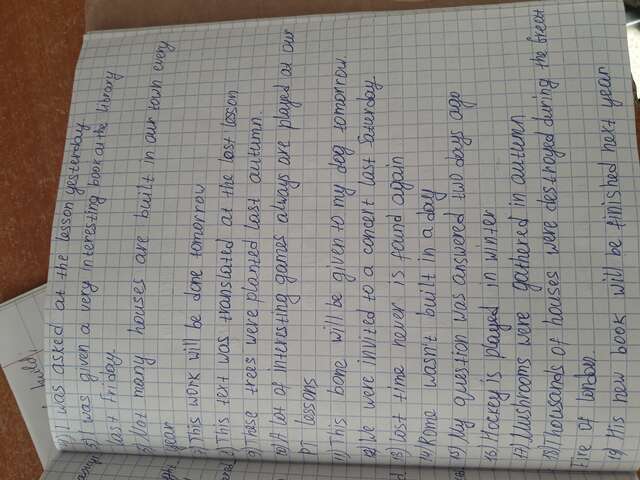 4) I was asked at the lesson yesterday
5) I was given a very interesting book at the library
last Friday.
6) Not many houses are built in our town every
year
7) This work will be done tomorrow
8) This text was translated at the last lesson
9) These trees were planted last autumn.
10) A lot of interesting games always are played at our
PT lessons
11) This bone will be given to my dog tomorrow
12) We were invited to a concert last Saturday.
13) Lost time never is found again
14) Rome wasn't built in a day
15) My question was answered two days ago
16) Hockey is played in winter
17) Mushrooms were gathered in autumn
18) Thousands of houses were destroyed during the Great
Fire of London.
19) His new book will be finished next year